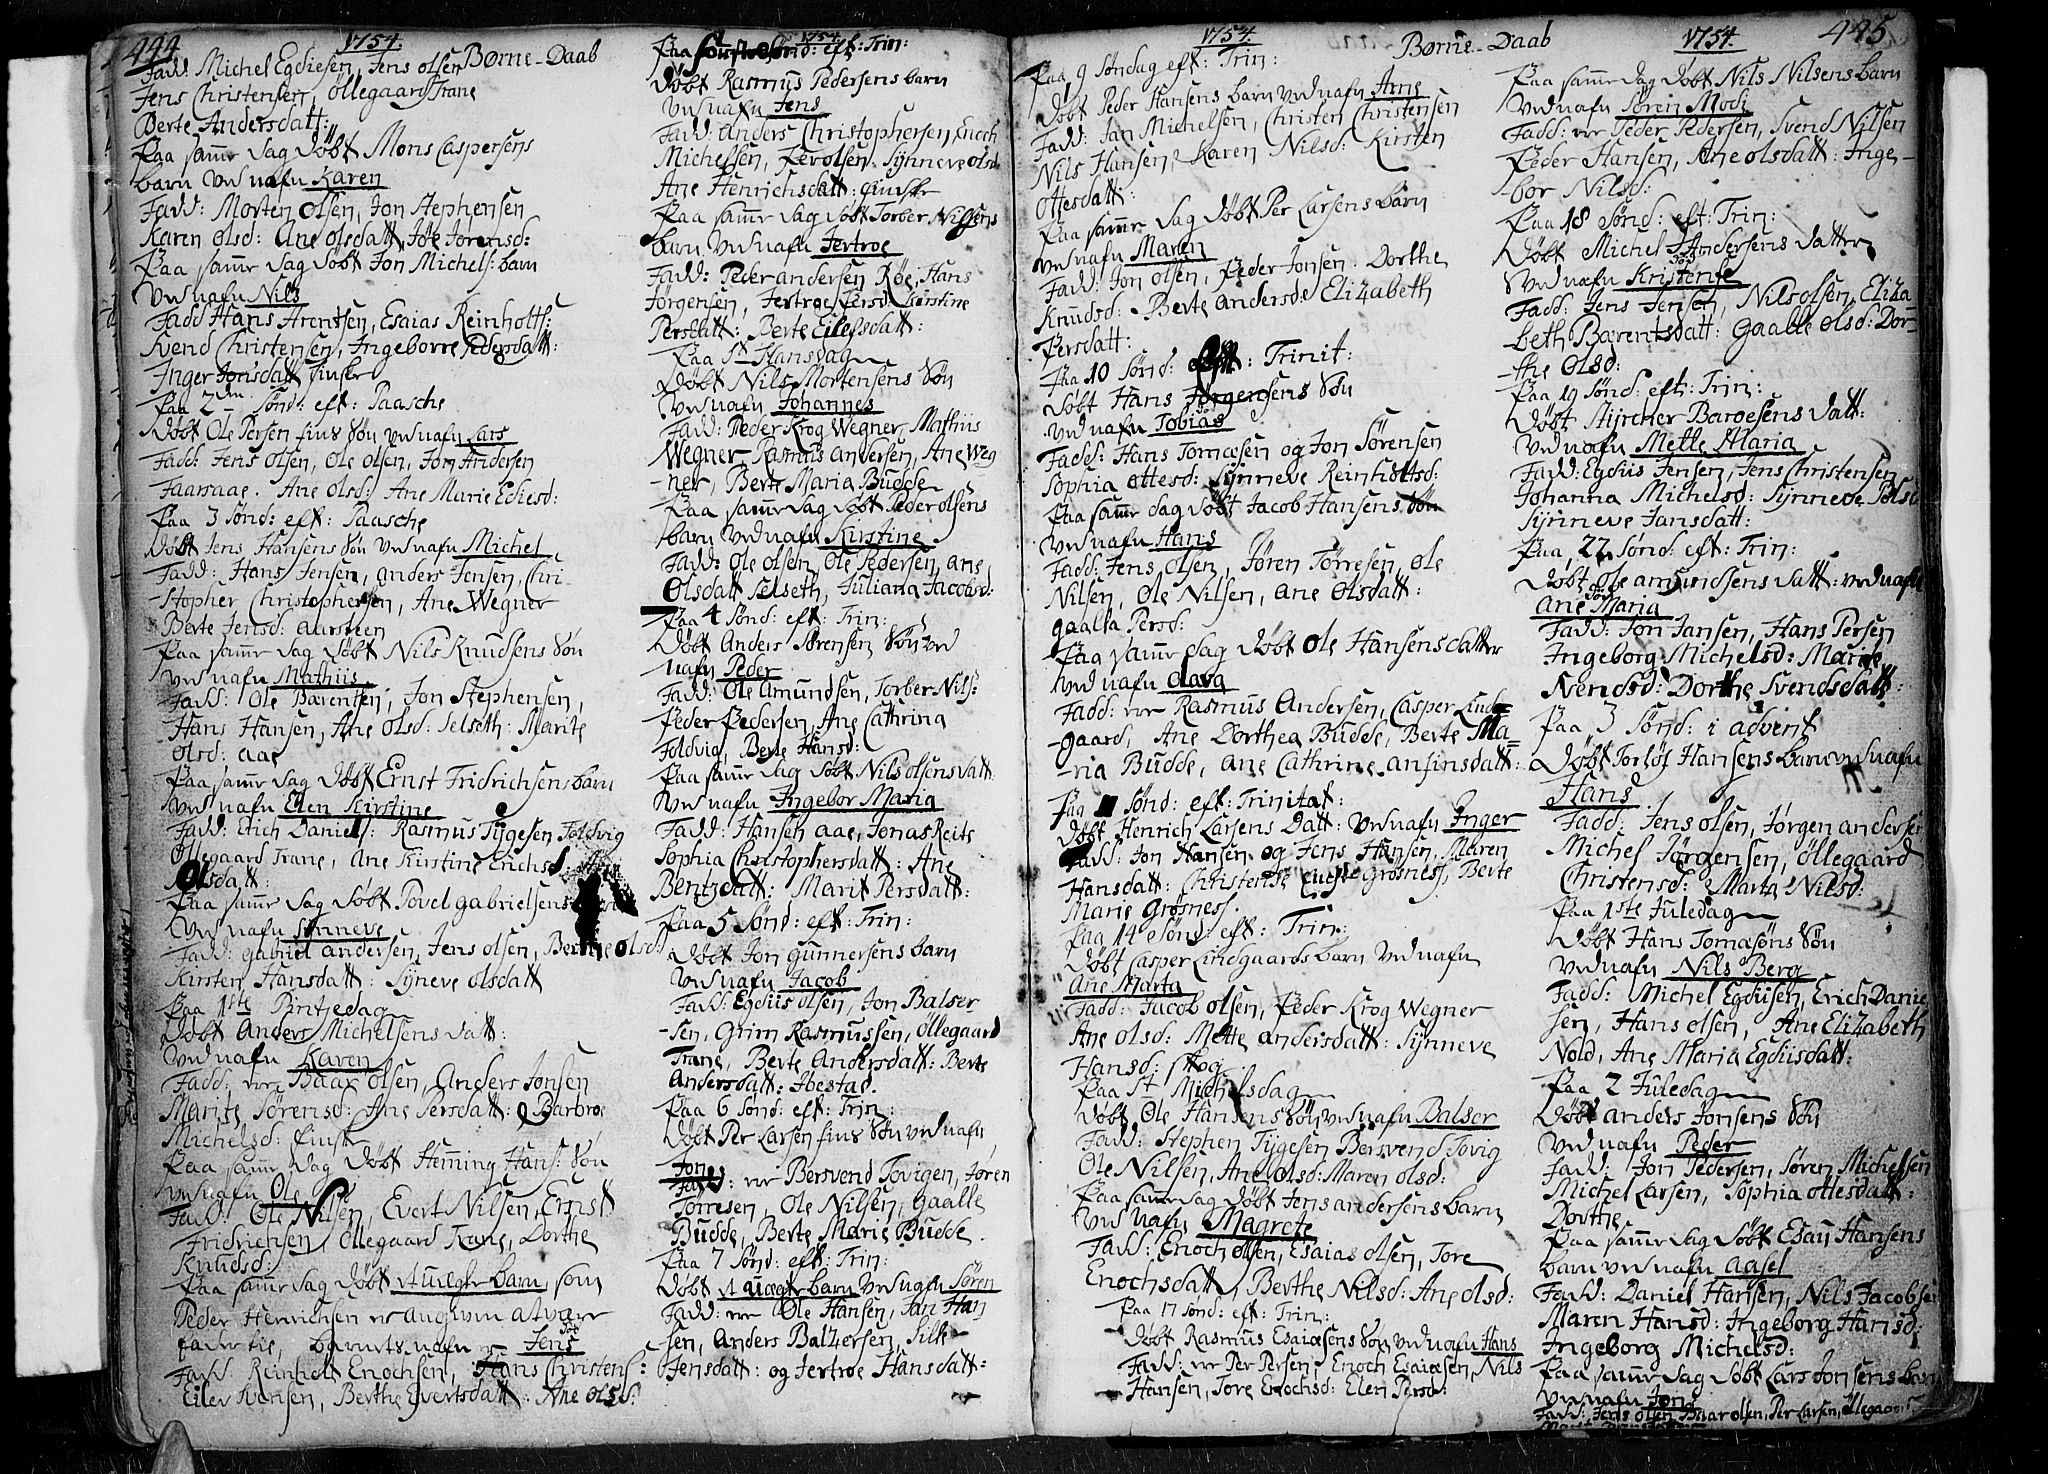 444
1754.
Børne-Daab
Fadd: Michel Egdiesen, Jens Olsen
Jens Christensen, Øllegaard Trane
Berte Andersdatt:
Paa samme dag døbt Mons Caspersens
barn ved nafn Karen
Fadd: Morten Olsen, Jon Stephensen
Karen Olsd: Ane Olsdatt, Jøe Jørensd:
Paa samme dag døbt Jon Michels: barn
ved nafn Nils
Fadd Hans Arentsen, Esaias Reinholts:
Svend Christensen, Ingeborre Pedersdatt:
Inger Jonsdatt
Paa 2den Sønd: eft: Paasche
Døbt Ole Persen Søn ved nafn Lars
Fadd: Jens Olsen, Ole Olsen, Jon Andersen
Faarsaae. Ane Olsd: Ane Marie Ediesd:
Paa 3 Sønd: eft: Paasche
Døbt Jens Hansens Søn ved nafn Michel
Fadd: Hans Jensen, Anders Jensen, Chri-
-stopher Christophersen, Ane Wegner
Berte Jensd: Aarsteen
Paa samme dag døbt Nils Knudsens Søn
ved nafn Mathiis.
Fadd: Ole Barentsen, Jon Stephensen,
Hans Hansen, Ane Olsd: Selseth: Marite
Olsd: Aae
Paa samme dag døbt Ernst Fridrichsens barn
ved nafn Elen Kirstine
Fadd: Erich Daniels: Rasmus Tygesen Foldvig
Øllegaard Trane, Ane Kirstine Erichsd
Olsdatt:
Paa samme dag døbt Povel Gabrielsens
ved nafn Synneve
Fadd: Gabriel Andersen, Jens Olsen, Olsd:
Kirsten Hansdatt: Syneve Olsdatt
Paa 1ste Pintzedag
Døbt Anders Michelsens Datt:
ved nafn Karen
Fadd: Baar Olsen, Anders Jonsen
Marite Sørensd: Ane Persdatt: Barbroe
Michelsd:
Paa samme dag døbt Heming Hans: Søn
ved nafn Ole
Fadd: Ole Nilsen, Evert Nilsen, Ernst
Fridrichsen, Øllegaard Trane, Dorthe
Knudsd:
Paa samme dag døbt et uægte barn, som
Peder Henrichsen er angiven at være
fader til, barnets nafn Jens
Fadd: Reinholt Enochsen, Hans Christens:
Eilev Ivansen, Berthe Evertsdatt: Ane Olsd:
1754.
Paa Sønd: eft: Trin:
Døbt Rasmus Pedersens barn
ved nafn Jens
Fadd: Anders Christophersen, Enoch
Michelsen, Per Olsen. Synneve Olsd:
Ane Henrichsdatt:
Paa samme dag døbt Torber Nilsens
barn ved nafn Jertroe
Fadd: Peder Andersen Røe, Hans
Jørgensen, Jertroe Persd: Kirstine
Persdatt: Berte Eilefsdatt:
Paa St Hansdag
Døbt Nils Mortensens Søn
ved nafn Johannes
Fadd: Peder Krog Wegner, Mathiis
Wegner, Rasmus Andersen, Ane Weg
-ner, Berte Maria Budde
Paa samme dag døbt Peder Olsens
barn ved nafn Kirstine.
Fadd: Ole Olsen, Ole Pedersen, Ane
Olsdatt Selseth, Juliana Jacobsd:
Paa 4 Sønd: eft: Trin:
Døbt Anders Sørensen Søn ved
nafn Peder
Fadd: Ole Amundsen, Torber Nils:
Peder Pedersen, Ane Cathrina
Foldvig, Berte Hansd:
Paa samme dag døbt Nils Olsens datt:
ved nafn Ingebor Maria
Fadd: Hansen Aae, Jonas Reite
Sophia Christophersdatt: Ane
Bentzdatt: Marit Persdatt:
Paa 5 Sønd: eft: Trin:
Døbt Jon Gunnersens barn
ved nafn Jacob
Fadd: Egdiis Olsen, Jon Balser
-sen, Grim Rasmussen, Øllegaard
Trane, Berte Andersdatt: Berte
Andersdatt: Ibestad.
Paa 6 Sønd: eft: Trin:
Døbt Per Larsen Søn ved nafn
Jon
Fadd: Bersvend Tovigen, Jøren
Torresen, Ole Nilsen, Gaalle
Budde, Berte Marie Budde.
Paa 7 Sønd: eft: Trin:
Døbt et uægte barn ved nafn Søren
Fadd: Ole Hansen, Jan Han
sen, Anders Balzersen, Silk-
Jensdatt: og Jertroe Hansdatt:
1754.
Børne-Daab
Paa 9 Søndag eft: Trin:
Døbt Peder Hansens barn ved nafn Arne
Fadd: Jan Michelsen, Christen Christensen
Nils Hansen, Karen Nilsd: Kirsten
Ottesdatt:
Paa samme dag døbt Per Larsens barn
ved nafn Maren
Fadd: Jon Olsen, Peder Jonsen. Dorthe
Knudsd: Berte Andersd: Elizabeth
Persdatt:
Paa 10 Sønd: eft: Trinit:
Døbt Hans Jørgensens Søn
ved nafn Tobias
Fadd: Hans Tomæsen og Jon Sørensen
Sophia Ottesd: Synneve Reinholtsd:
Paa samme dag døbt Jacob Hansens Søn
ved nafn Hans
Fadd: Jens Olsen, Jøren Torresen, Ole
Nilsen, Ole Nilsen, Ane Olsdatt:
Gaalla Persd:
Paa samme dag døbt Ole Hansens datter
ved nafn Olava
Fadd: Rasmus Andersen, Casper Lind-
-gaard, Ane Dorthea Budde, Berte Ma-
-ria Budde, Ane Cathrine Anfinsdatt:
Paa Sønd: eft: Trinitat:
Døbt Henrich Larsens Datt: ved nafn Inger
Fadd: Jon Hansen og Jens Hansen, Maren
Hansdatt: Christense Grøsness, Berte
Marie Grøsness
Paa 14 Sønd: eft: Trin:
Døbt Casper Lindgaards barn ved nafn
Ane Marta
Fadd: Jacob Olsen, Peder Krog Wegner
Ane Olsd: Mette Andersdatt: Synneve
Hansd: Skog
Paa St Michelsdag
Døbt Ole Hansens Søn ved nafn Balser
Fadd: Stephen Tygesen, Bersvend Tovig
Ole Nilsen, Ane Olsd: Maren Olsd:
Paa samme dag døbt Jens Andersens barn
ved nafn Magrete
Fadd: Enoch Olsen, Esaias Olsen, Tore
Enochsdatt, Berthe Nilsd: Ane Olsd:
Paa 17 Sønd: eft: Trin:
Døbt Rasmus Esaiæsens Søn ved nafn Hans
Fadd: Per Persen, Enoch Esaiæsen, Nils
Hansen, Tore Enochsd: Elen Persd:
1754.
445
Paa samme dag døbt Nils Nilsens barn
ved nafn Søren Modi
Fadd: Peder Pedersen, Svend Nilsen
Peder Hansen, Ane Olsdatt: Inge-
-bor Nilsd:
Paa 18 Sønd: eft: Trin:
Døbt Michel Andersens datter
ved nafn Kristense
Fadd: Jens Jensen, Nils Olsen, Eliza
-beth Barentsdatt: Gaalle Olsd: Dor-
-the Olsd:
Paa 19 Sønd: eft: Trin:
Døbt Styrcher Baroesens Datt:
ved nafn Mette Maria
Fadd: Egdiis Jensen, Jens Christensen
Johanna Michelsd: Synneve Polsd
Synneve Jansdatt:
Paa 22 Sønd: eft: Trin:
Døbt Ole Amundsens datt: ved nafn
Ane Maria
Fadd: Jon Jansen, Hans Persen
Ingeborg Michelsd: Marite
Svendsd: Dorthe Svendsdatt:
Paa 3 Sønd: i Advent
Døbt Torløf Hansens barn ved nafn
Hans
Fadd: Jens Olsen, Jørgen Andersen
Michel Jørgensen, Øllegaard
Christensd: Marta Nilsd:
Paa 1ste Juledag
Døbt Hans Tomæsøns Søn
ved nafn Nils Berg
Fadd: Michel Egdiisen, Erich Danie
sen, Hans Olsen, Ane Elizabeth
Nold, Ane Maria Egdiisdatt:
Paa 2 Juledag
Døbt Anders Jonsens Søn
ved nafn Peder
Fadd: Jon Pedersen, Søren Michelsen
Michel Larsen, Sophia Ottesdatt:
Dorthe
Paa samme dag døbt Esaij Hansens
barn ved nafn Aasel
Fadd: Daniel Hansen, Nils Jacobsen
Maren Hansd: Ingeborg Hansd:
Ingeborg Michelsd:
Paa samme dag døbt Lars Jonsens barn
ved nafn Jon
Fadd: Jens Olsen, Baar Olsen, Per Larsen, Øllegaard